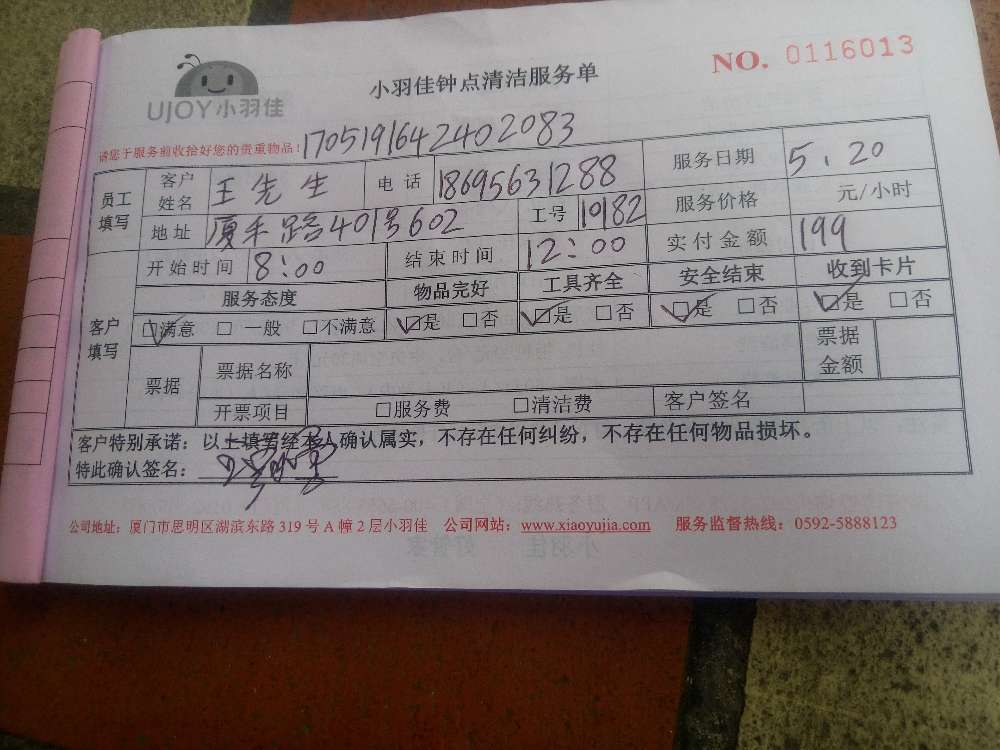 UJOY小羽佳
小羽佳钟点清洁服务单
NO. 0116013
请您于服务前收拾好您的贵重物品! 1705191642402083
员工填写 客户姓名 王先生 电话 18695631288 服务日期 5.20
地址 厦禾路401号602 工号 10182 服务价格 元/小时
开始时间 8:00 结束时间 12:00 实付金额 199
客户填写 服务态度 物品完好 工具齐全 安全结束 收到卡片
☑满意 □一般 □不满意 ☑是 □否 ☑是 □否 ☑是 □否 ☑是 □否
票据 票据名称 票据金额
开票项目 □服务费 □清洁费 客户签名
客户特别承诺:以上填写经本人确认属实,不存在任何纠纷,不存在任何物品损坏。
特此确认签名:
公司地址:厦门市思明区湖滨东路 319 号 A 幢 2 层小羽佳 公司网站:www.xiaoyujia.com 服务监督热线:0592-5888123